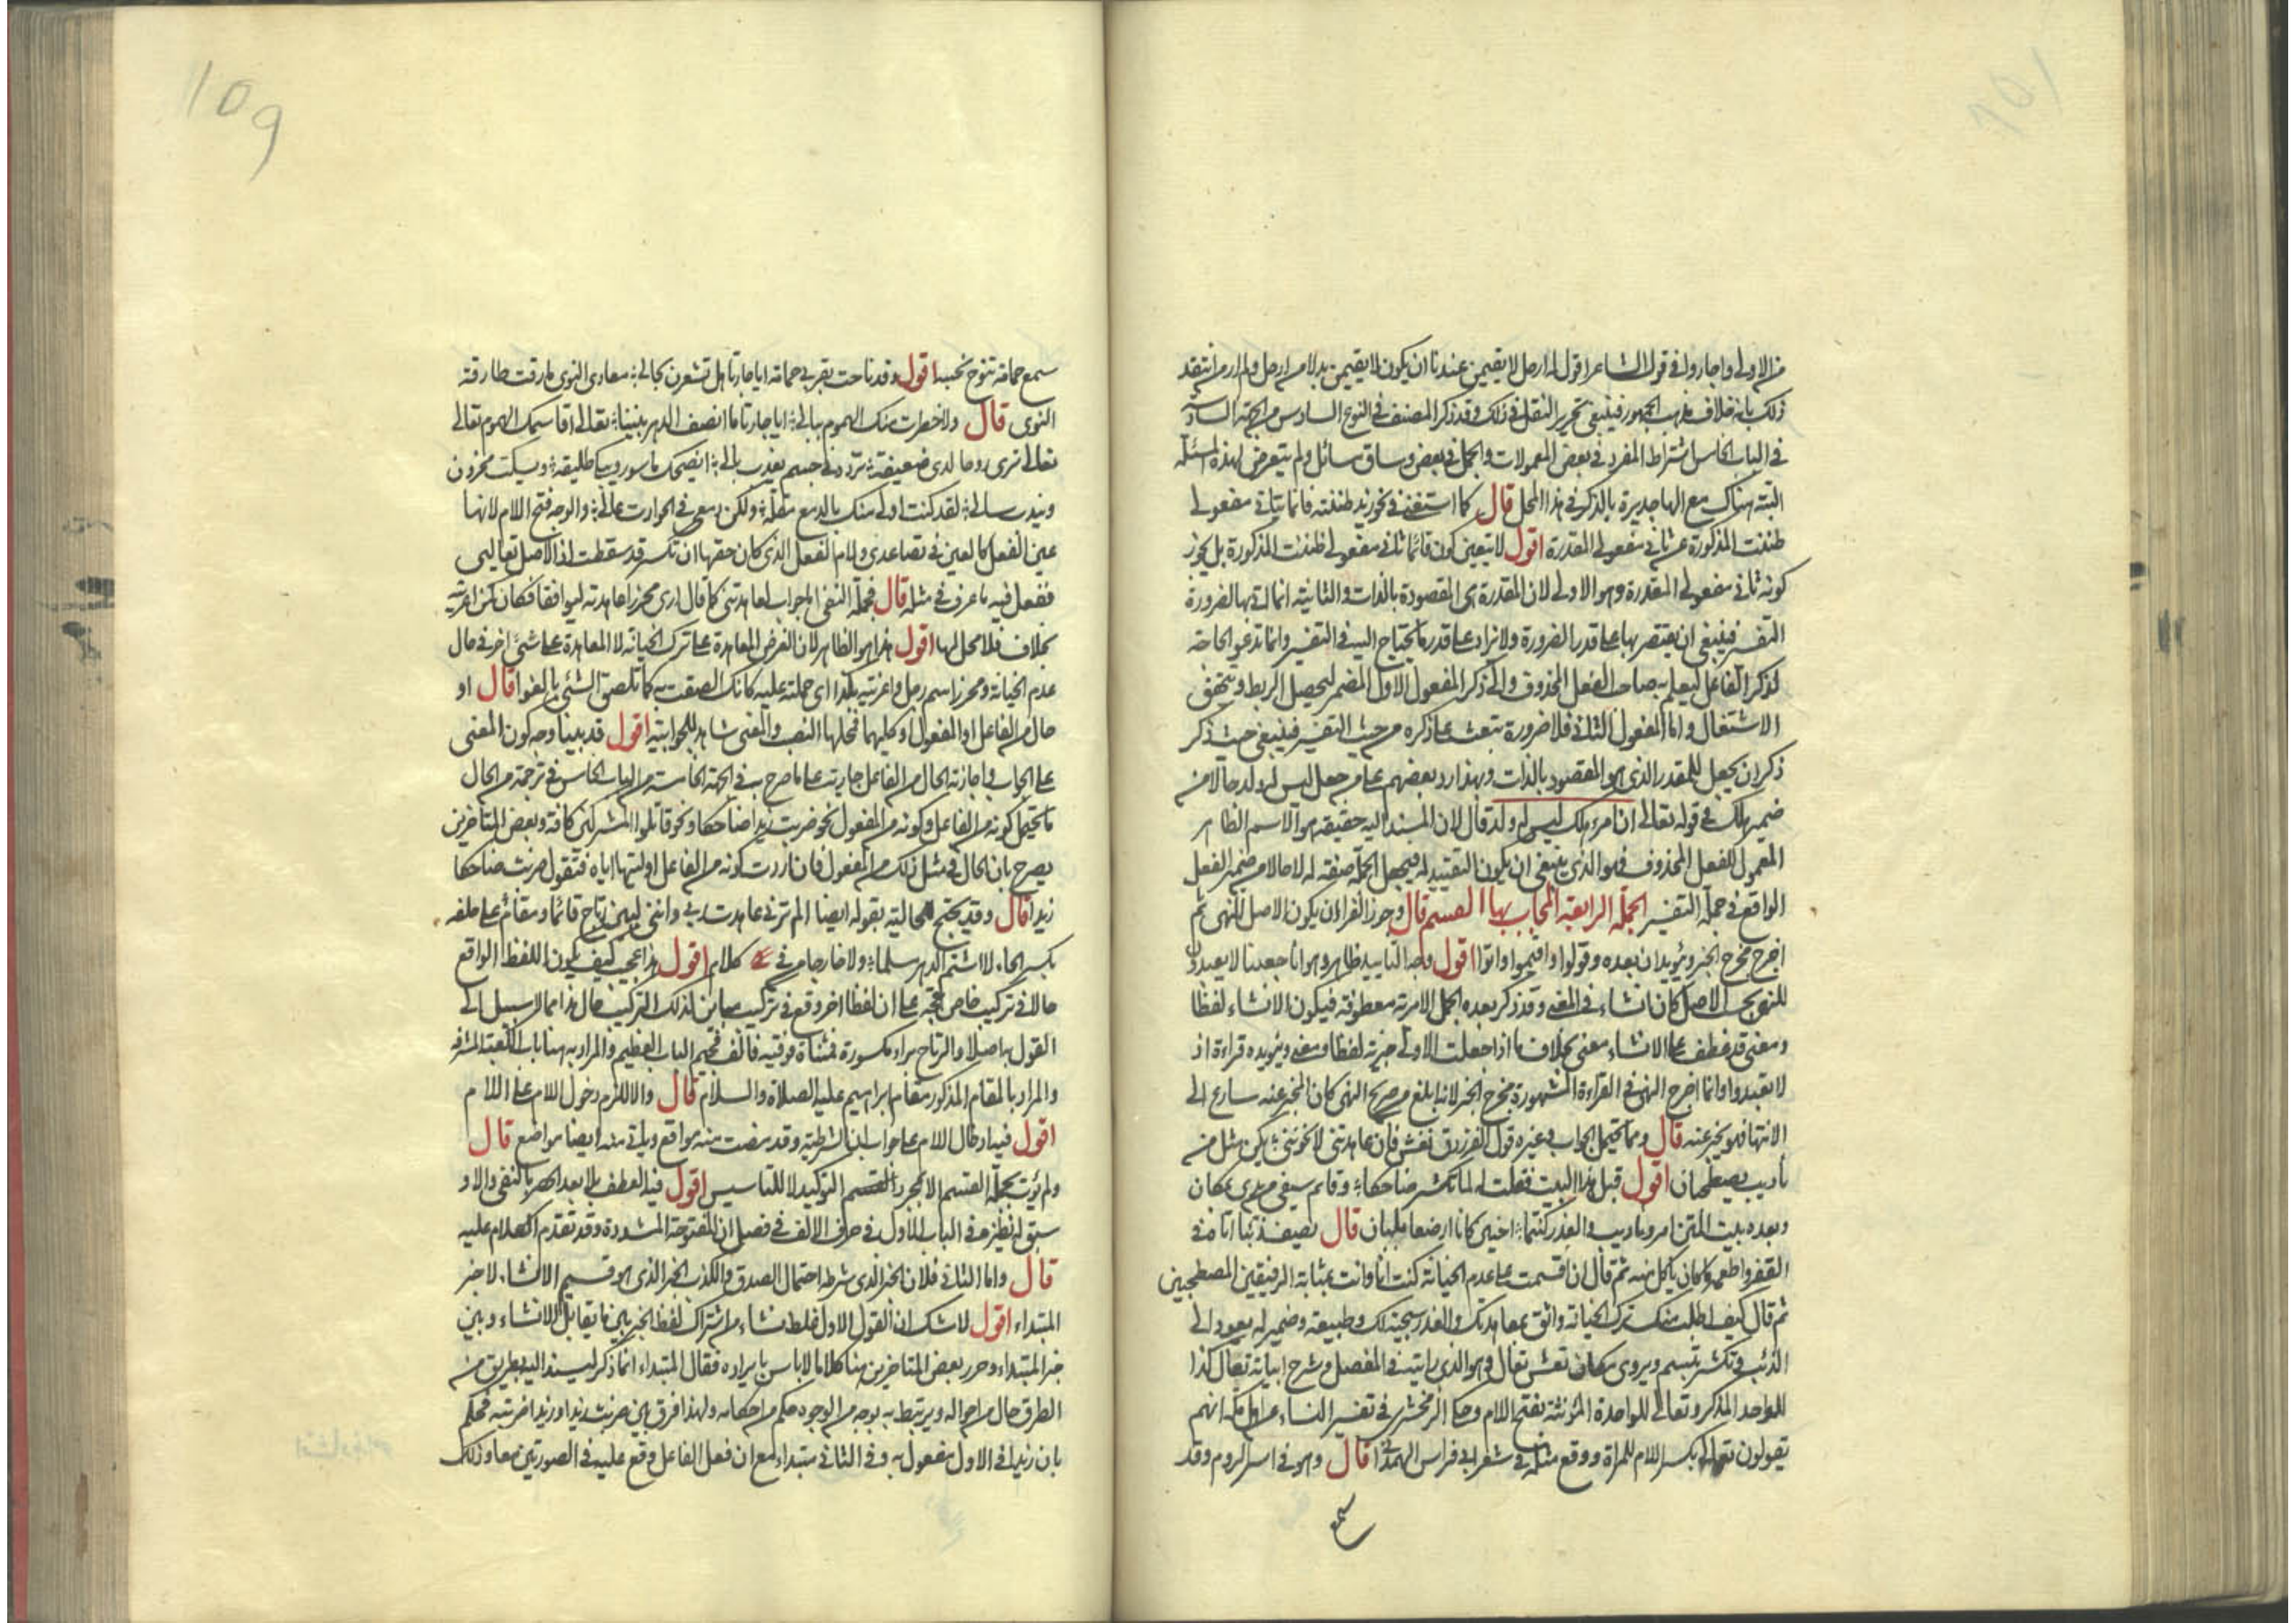 من الاولى واجازوا في قول الشاعر اقول له ارحل لا تقيمن عندنا ان يكون لا تقيمن بدلا من ارحل ولم ار من انتقد
ذلك بانه خلاف مذهب الجمهور فينبغي تحرير النقل في ذلك وقد ذكر المصنف في النوع السادس من الجهة السادسة
في الباب الخامس اشتراط المفرد في بعض المعمولات والجمل في بعض وساق مسائل ولم يتعرض لهذه المسئلة
البتة هناك مع انها جديرة بالذكر في هذا المحل قال كما استغنى في نحو زيد ظننته قائما بثاني مفعولي
ظننت المذكورة عن ثاني مفعولي المقدرة اقول لا يتعين كون قائما ثاني مفعولي ظننت المذكورة بل يجوز
كونه ثاني مفعولي المقدرة وهو الاولى لان المقدرة هي المقصودة بالذات والثانية انما اتى بها لضرورة
التفسير فينبغي ان يقتصر بها على قدر الضرورة ولا يزاد على قدر ما يحتاج اليه في التفسير وانما تدعو الحاجة
لذكر الفاعل ليعلم به صاحب الفعل المحذوف والى ذكر المفعول الاول المضمر ليحصل الربط ويتحقق
الاشتغال واما المفعول الثاني فلا ضرورة تبعث على ذكره من حيث التفسير فينبغي حيث ذكر
ذكر ان يجعل للمقدر الذي هو المقصود بالذات وبهذا رد بعضهم على من جعل ليس له ولد حالا من
ضمير هلك في قوله تعالى ان امرؤ هلك ليس له ولد قال لان المسند اليه حقيقة هو الاسم الظاهر
المعمول للفعل المحذوف فهو الذي ينبغي ان يكون التقييد له فيجعل الجملة صفة له لا حالا من ضمير الفعل
الواقع في جملة التفسير الجملة الرابعة المجاب بها القسم قال وجوز الفراء ان يكون الاصل النهي ثم
اخرج مخرج الخبر ويؤيد ان بعده وقولوا واقيموا واتوا اقول وجه التاييد ظاهر وهو انا جعلنا لا تعبدون
للنهي بحسب الاصل كان انشاء في المعنى وقد ذكر بعده الجمل الامرية معطوفة فيكون الانشاء لفظا
ومعنى قد عطف على الانشاء معنى بخلاف ما اذا جعلت الاولى خبرية لفظا ومعنى ويؤيده قراءة اذ
لا تعبدوا وانما اخرج النهي في القراءة المشهورة مخرج الخبر لانه ابلغ من صريح النهي كان المخبر عنه سارع الى
الانتهاء فهو يخبر عنه قال ومما يحتمل الجواب وغيره قول الفرزدق تعش فان عاهدتني لا تخونني نكن مثل من
ياذيب يصطحبان اقول قبل هذا البيت فقلت له لما تكشر ضاحكا وقائم سيفي من يدي بمكان
وبعده بيت المتن امرؤ ياذيب والغدر كنتما اخيين كانا ارضعا بلبان قال يصف ذئبا اتاه في
القفر واطعمه وكان ياكل منه ثم قال ان اقسمت على عدم الخيانة كنت انا وانت بمثابة الرفيقين المصطحبين
ثم قال كيف اطلب منك ترك الخيانة واثق بمعاهدتك والغدر سجية لك وطبيعة وضمير له يعود الى
الذئب وتكشر تبسم ويروى مكان تعش تعال وهو الذي رايته في المفصل وشرح ابياته تعال كذا
للواحد المذكر وتعالى للواحدة المؤنثة بفتح اللام وحكى الزمخشري في تفسير النساء عن اهل مكة انهم
يقولون تعالى بكسر اللام للمراة ووقع مثله في شعر ابي فراس الهمداني قال وهو في اسر الروم وقد
سمع
109
سمع حمامة تنوح بحسه اقول وقد ناحت بقربي حمامة ايا جارتا هل تشعرين بحالي معاذ النوى ما ذقت طارقة
النوى قال ولا خطرت منك الهموم ببالي ايا جارتا ما انصف الدهر بيننا تعالى اقاسمك الهموم تعالى
تعالى ترى روحا لدي ضعيفة تردد في جسم يعذب بالي ايضحك ماسور وتبكي طليقة ويسكت محزون
ويندب سالي لقد كنت اولى منك بالدمع مقلة ولكن دمعي في الحوادث غالي والوجه فتح اللام لانها
عين الفعل كالعين في تصاعدي ولام الفعل الذي كان حقها ان تكسر قد سقطت اذ الاصل تعاليي
ففعل فيه ما عرف في مثله قال فجملة النفي اما جواب لعاهدتني كما قال ارى محرزا عاهدته ليوافقن فكان كمن اغريته
بخلاف فلا محل لها اقول هذا هو الظاهر لان الغرض المعاهدة على ترك الخيانة لا المعاهدة على شئ اخر في حال
عدم الخيانة ومحرز اسم رجل واغريته بكذا اي حملته عليه كانك الصقته به كما تلصق الشئ بالغراء قال او
حال من الفاعل او المفعول او كليهما فمحلها النصب والمعنى شاهد للجوابية اقول قد بينا وجه كون المعنى
على الجواب واجازته الحال من الفاعل جارية على ما صرح به في الجهة الخامسة من الباب الخامس في ترجمة من الحال
ما يحتمل كونه من الفاعل وكونه من المفعول نحو ضربت زيدا ضاحكا ونحو قاتلوا المشركين كافة وبعض المتاخرين
يصرح بان الحال في مثل ذلك من المفعول فان اردت كونه من الفاعل اوليتها اياه فتقول ضربت ضاحكا
زيدا قال وقد يحتج للحالية بقوله ايضا الم ترني عاهدت ربي وانني لبين رتاج قائما ومقام على حلفة
بكسر الحاء لا اشتم الدهر مسلما ولا خارجا من في كلام اقول هذا عجيب كيف يكون اللفظ الواقع
حالا في تركيب خاص حجة على ان لفظا اخر وقع في تركيب مباين لذلك التركيب حال هذا مما لا سبيل الى
القول به اصلا والرتاج براء مكسورة فمثناة فوقية فالف فجيم الباب العظيم والمراد به هنا باب الكعبة المشرفة
والمراد بالمقام المذكور مقام ابراهيم عليه الصلاة والسلام قال والا للزم دخول اللام على اللام
اقول فيه ادخال اللام على جواب ان الشرطية وقد مضت منه مواقع وياتي منه ايضا مواضع قال
ولم يؤت بجملة القسم الا لمجرد التوكيد لا للتاسيس اقول فيه العطف بلا بعد الحصر بالنفي والا و
سبق له نظيره في الباب الاول في حرف الالف في فصل ان المفتوحة المشددة وقد تقدم الكلام عليه
قال واما الثاني فلان الخبر الذي شرطه احتمال الصدق والكذب الخبر الذي هو قسيم الانشاء لا خبر
المبتداء اقول لا شك ان القول الاول غلط نشاء من اشتراك لفظ الخبر بين ما يقابل الانشاء وبين
خبر المبتداء وحرر بعض المتاخرين هنا كلاما لا باس بايراده فقال المبتداء انما ذكر ليسند اليه بطريق من
الطرق حال من احواله ويرتبط به بوجه من الوجوه حكم من احكامه ولهذا فرق بين ضربت زيدا وزيد اضربته فحكم
بان زيدا في الاول مفعول به وفي الثاني مبتداء مع ان فعل الفاعل وقع عليه في الصورتين معا وذلك